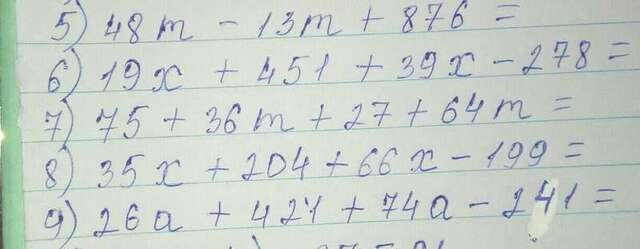 5) 48m - 13m + 876 =
6) 19x + 451 + 39x - 278 =
7) 75 + 36m + 27 + 64m =
8) 35x + 204 + 66x - 199 =
9) 26a + 427 + 74a - 241 =